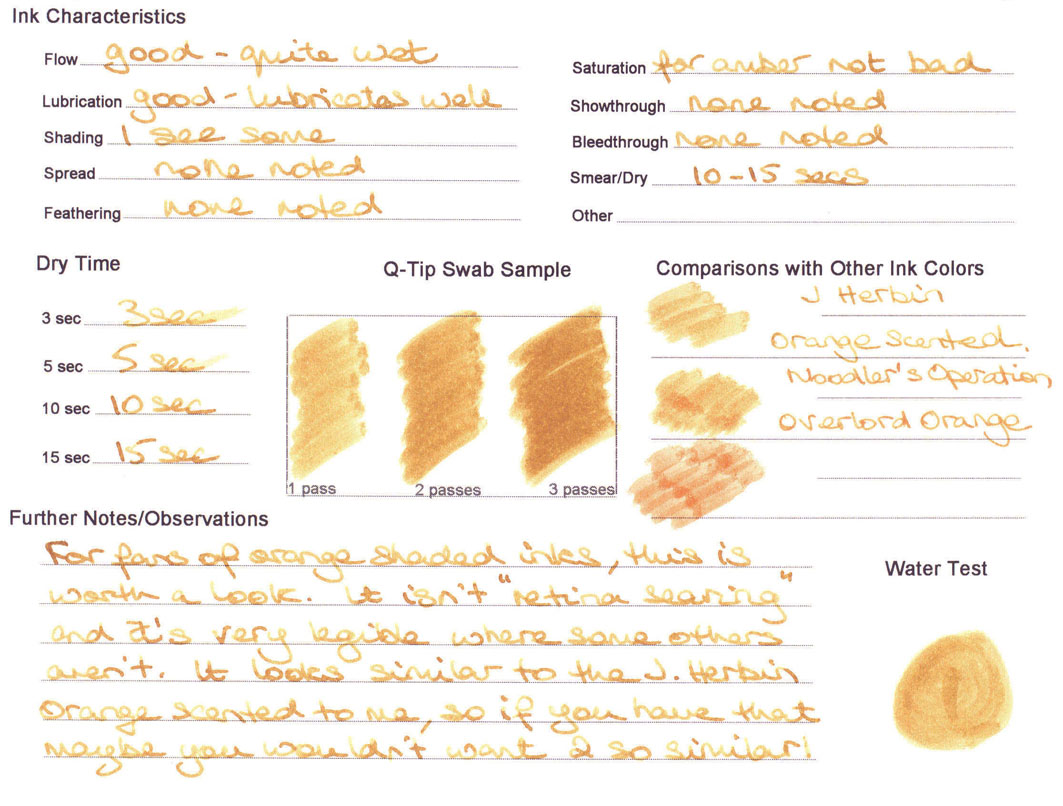 Ink Characteristics
Flow good - quite wet
Lubrication good - lubricates well
Shading I see some
Spread none noted
Feathering none noted
Saturation for amber not bad
Showthrough none noted
Bleedthrough none noted
Smear/Dry 10-15 secs
Other
Dry Time
3 sec 3 sec
5 sec 5 sec
10 sec 10 sec
15 sec 15 sec
Q-Tip Swab Sample
1 pass 2 passes 3 passes
Comparisons with Other Ink Colors
J Herbin
Orange Scented.
Noodler's Operation
Overlord Orange
Further Notes/Observations
For fans of orange shaded inks, this is
worth a look. It isn't "retina searing"
and it's very legible where some others
aren't. It looks similar to the J. Herbin
Orange scented to me, so if you have that
maybe you wouldn't want 2 so similar!
Water Test